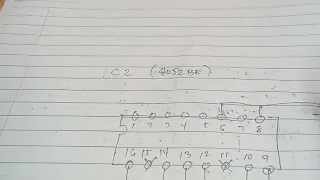 C2 (4052BE)
1 2 3 4 5 6 7 8
16 15 14 13 12 11 10 9